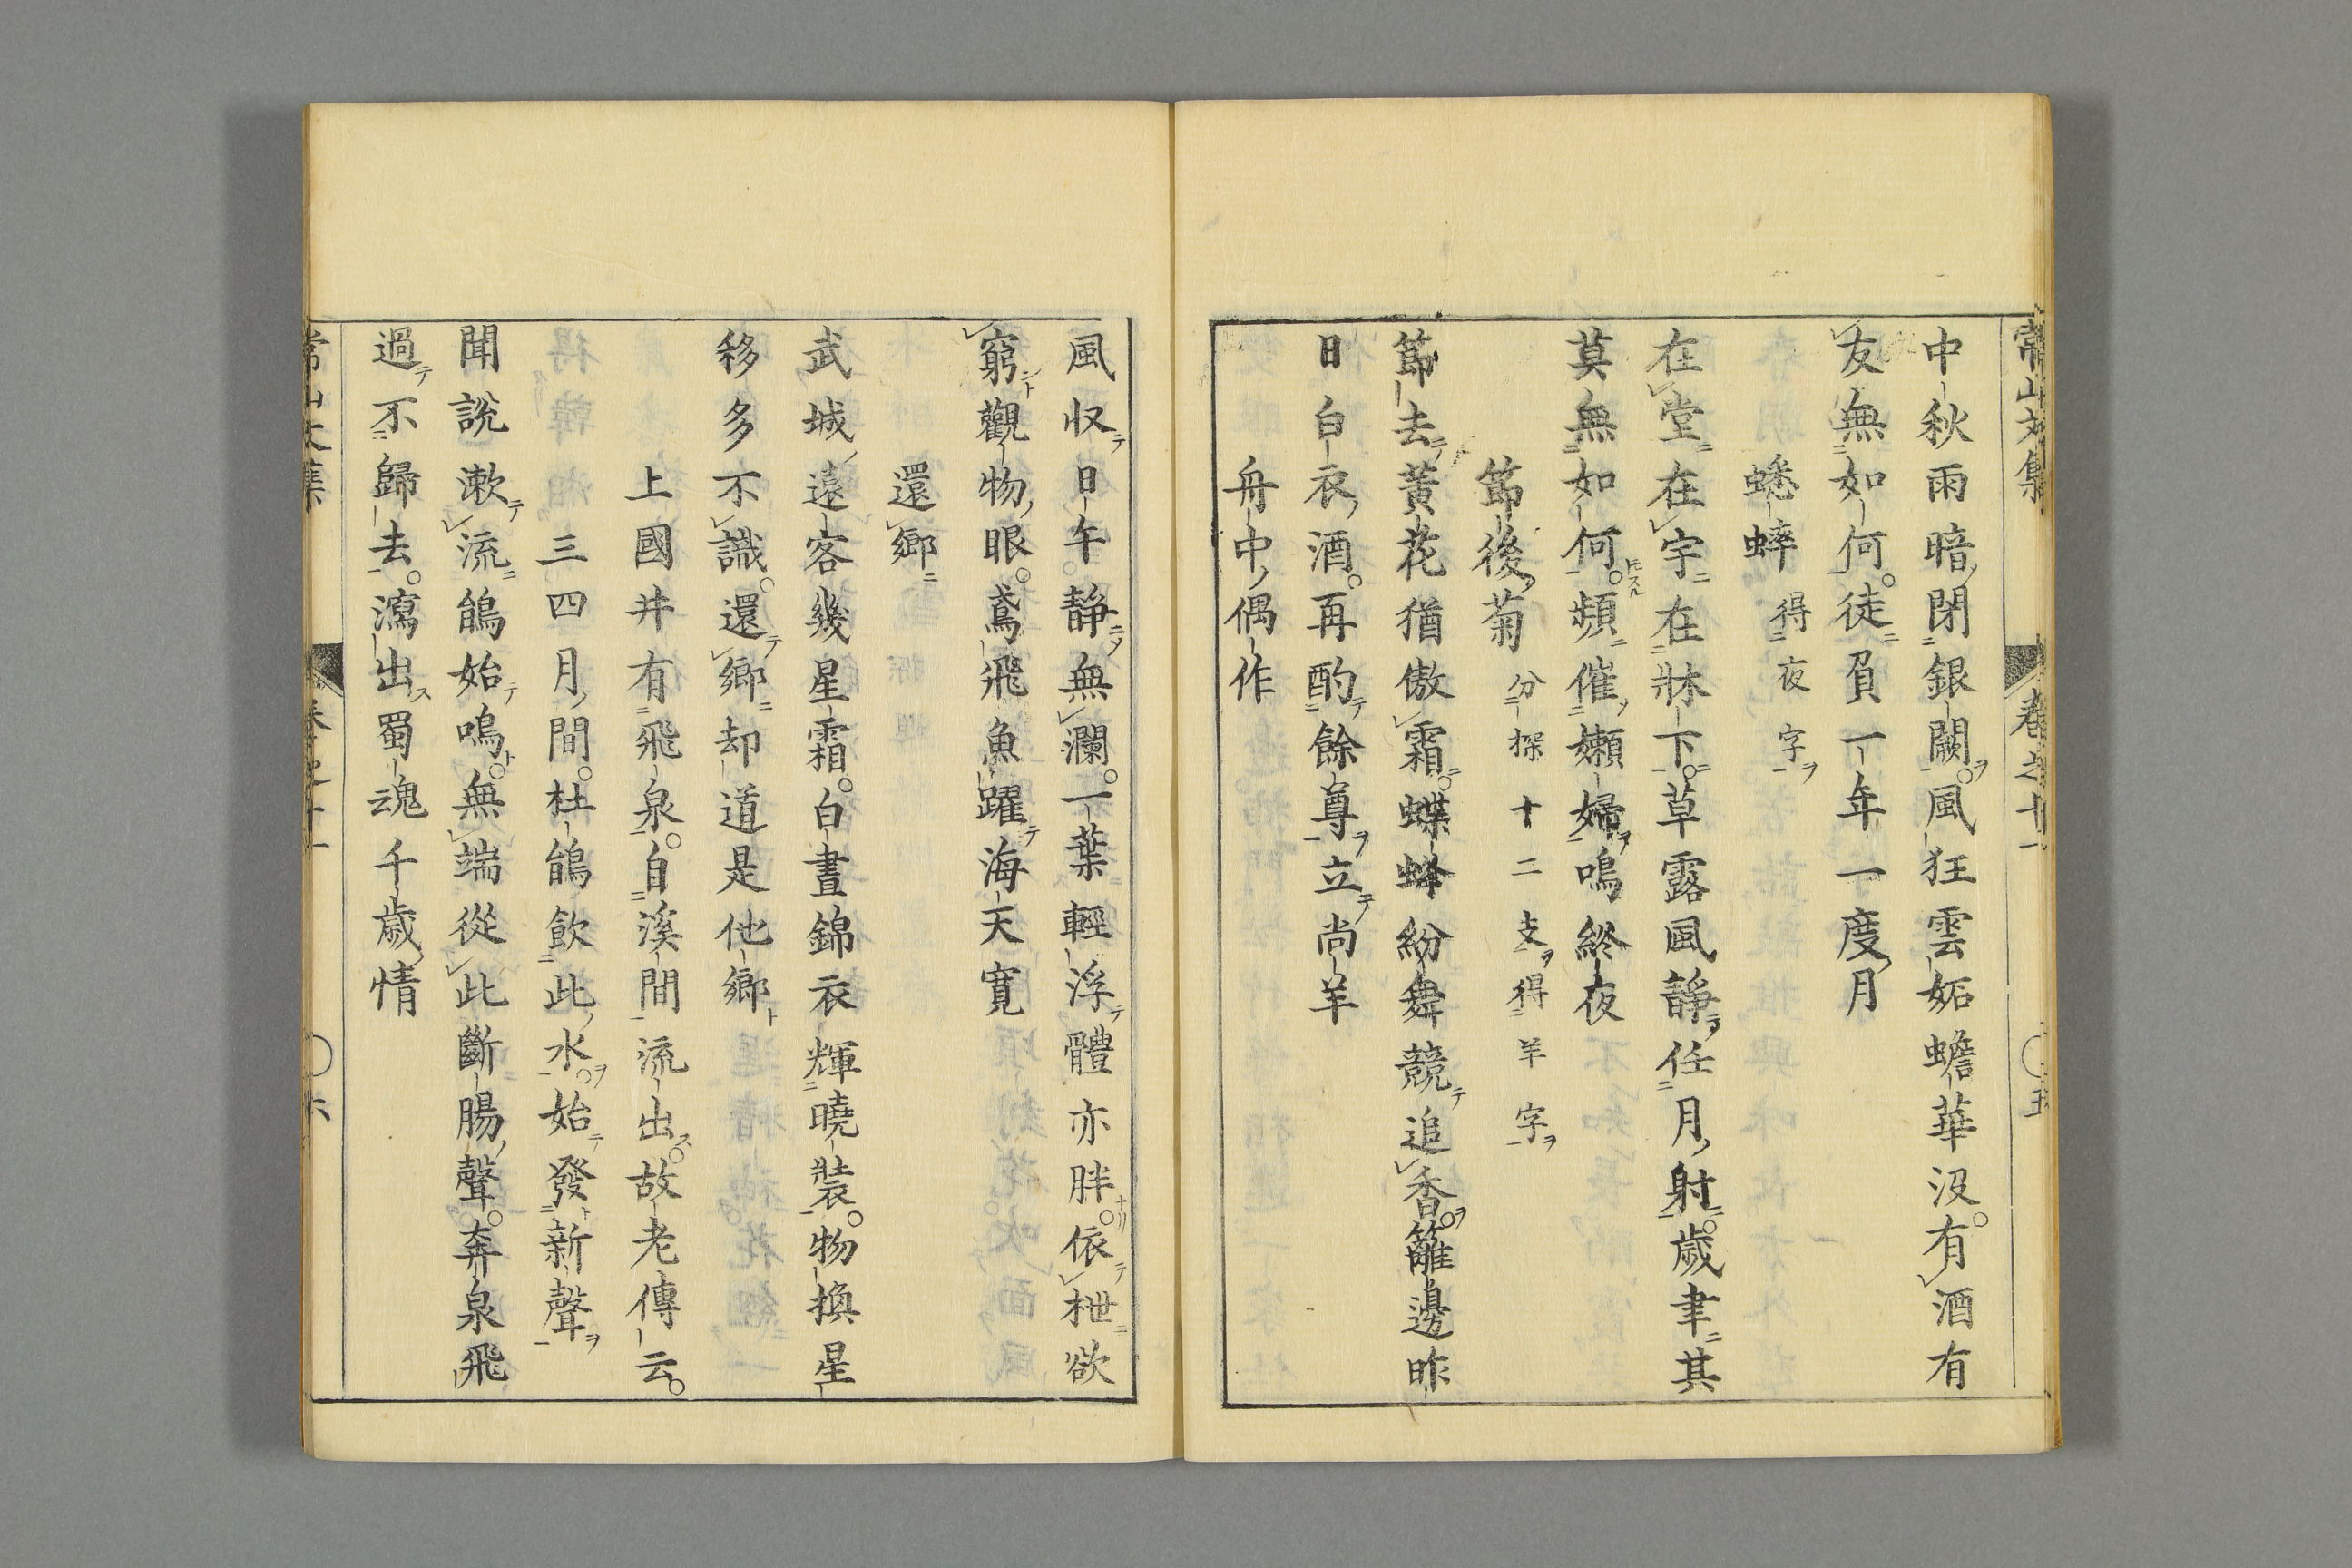 常山文集 卷之十一 〇五
中秋雨暗閉銀闕風狂雲妬蟾華没有酒有
友無如何徒負一年一度月
蟋蟀 得夜字
在堂在宇在牀下草露風靜任月射歲聿其
莫無如何頻催嬾婦鳴終夜
節後菊 分探十二支得羊字
節去黃花猶傲霜蝶蜂紛舞競追香籬邊昨
日白衣酒再酌餘尊立尚羊
舟中偶作
風收日午靜無瀾一葉輕浮體亦胖依枻欲
窮觀物眼鳶飛魚躍海天寬
還鄉
武城遠客幾星霜白晝錦衣輝曉裝物換星
移多不識還鄉却道是他鄉
上國井有飛泉自溪間流出故老傳云
三四月間杜鵑飲此水始發新聲
聞說漱流鵑始鳴無端從此斷腸聲奔泉飛
過不歸去瀉出蜀魂千歲情
常山文集 卷之十一 〇六